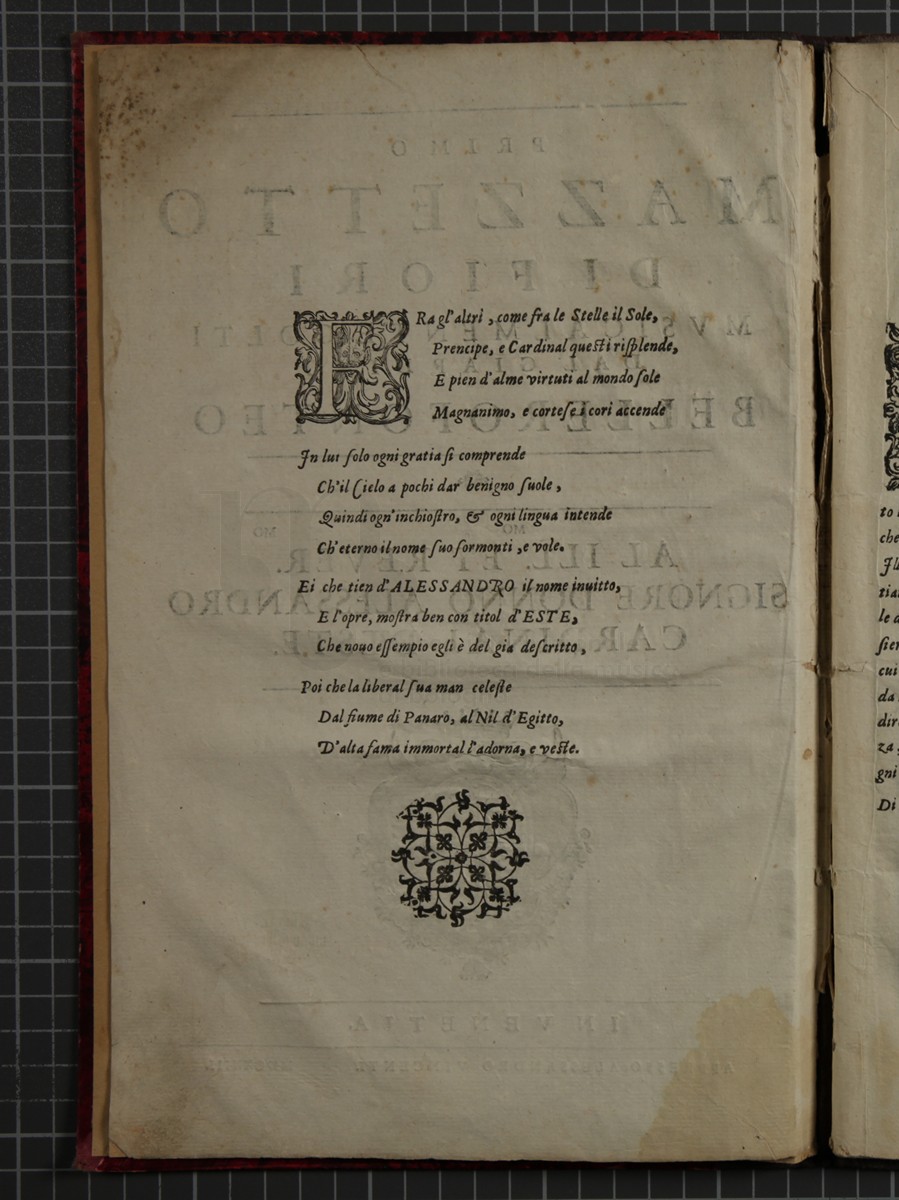 FRa gl'altri, come fra le Stelle il Sole,
Prencipe, e Cardinal questi risplende,
E pien d'alme virtuti al mondo sole
Magnanimo, e cortese i cori accende
In lui solo ogni gratia si comprende
Ch'il Cielo a pochi dar benigno suole,
Quindi ogn'inchiostro, & ogni lingua intende
Ch'eterno il nome suo formonti, e vole.
Ei che tien d'ALESSANDRO il nome inuitto,
E l'opre, mostra ben con titol d'ESTE,
Che nouo essempio egli è del gia descritto,
Poi che la liberal sua man celeste
Dal fiume di Panaro, al Nil d'Egitto,
D'alta fama immortal l'adorna, e veste.
PRIMO
MAZZETTO
DI FIORI
BELLEROFONTE
AL ILL. ET REVER.
MO MO
SIGNORE DON ALESSANDRO
CAR
IN VENETIA
to
che
le
cui
da
dir
za
gni
Di